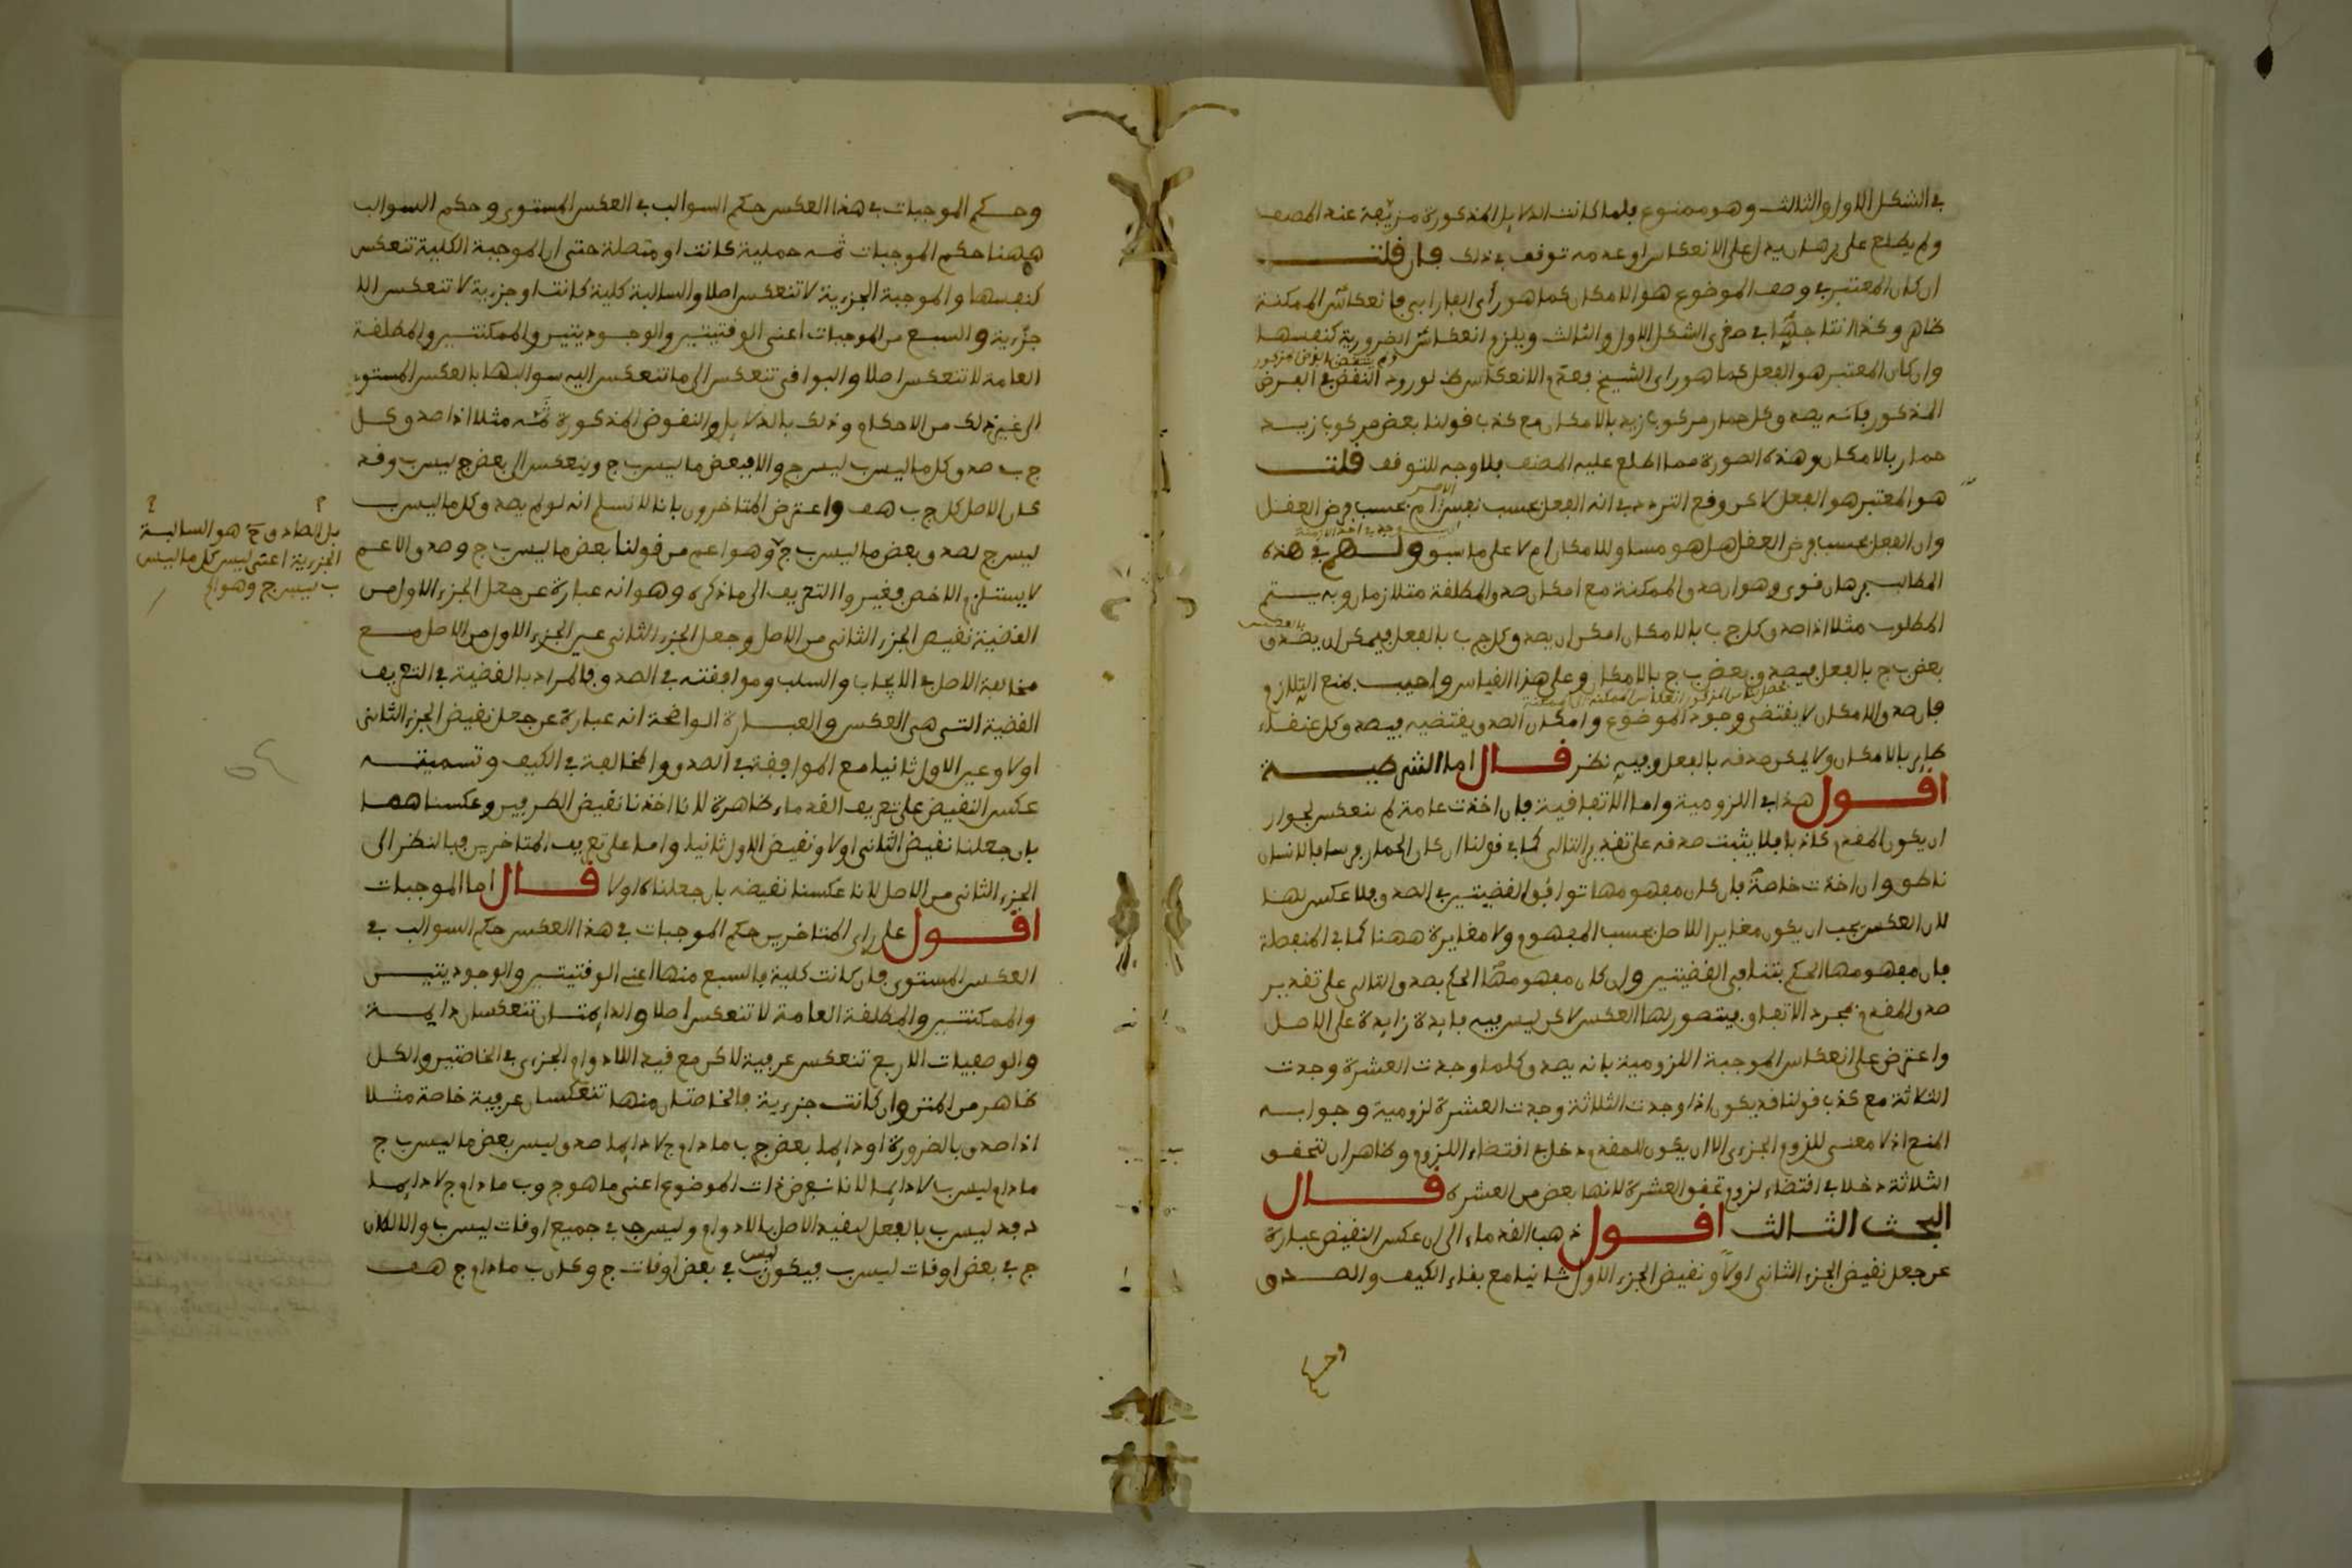 في الشكل الاول والثالث وهو ممنوع فلما كانت الدلايل المذكورة مزيّفة عند المصنف
ولم يطلع على برهان يدل على الانعكاس او عدمه توقف في ذلك فان قلت
ان كان المعتبر في وصف الموضوع هو الامكان كما هو رأي الفارابي فانعكاس الممكنة
ظاهر وكذا انتاجها في صغرى الشكل الاول والثالث ويلزم انعكاس الضرورية كنفسها
وان كان المعتبر هو الفعل كما هو راى الشيخ فعدم الانعكاس ظ لورود النقض في الفرض
المذكور فانه يصدق كل حمار مركوب زيد بالامكان مع كذب قولنا بعض مركوب زيد
حمار بالامكان وهذه الصورة مما اطلع عليه المصنف فلا وجه للتوقف قلت
هو المعتبر هو الفعل لاكن وقع التردد في انه الفعل بحسب نفس الامر ام بحسب فرض العقل
وان الفعل بحسب فرض العقل هل هو مساو للامكان ام لا على ما سبق ولهم في هذه
المطالب برهان قوى وهو ان صدق الممكنة مع امكان صدق المطلقة متلازمان وبه يتم
المطلوب مثلا اذا صدق كل ج ب بالامكان امكن ان يصدق كل ج ب بالفعل فيمكن ان يصدق
بعض ب ج بالفعل فيصدق بعض ب ج بالامكان وعلى هذا القياس واجيب بمنع التلازم
فان صدق الامكان لا يقتضى وجود الموضوع وامكان الصدق يقتضيه فيصدق كل عنقاء
طاير بالامكان ولا يمكن صدقه بالفعل وفيه نظر قال اما الشرطية
اقول هذا في اللزومية واما الاتفاقية فان اخذت عامة لم تنعكس لجواز
ان يكون المقدم كاذبا فلا يثبت صدقه على تقدير التالى كما في قولنا ان كان الحمار فرسا فالانسان
ناطق وان اخذت خاصة فان كان مفهومها توافق القضيتين في الصدق فلا عكس لها
لان العكس يجب ان يكون مغايرا للاصل بحسب المفهوم ولا مغايرة ههنا كما في المنفصلة
فان مفهومها الحكم بتنافى القضيتين وان كان مفهومها الحكم بصدق التالى على تقدير
صدق المقدم بمجرد الاتفاق فيتصور لها العكس لاكن ليس فيه فايدة زايدة على الاصل
واعترض على انعكاس الموجبة اللزومية بانه يصدق كلما وجدت العشرة وجدت
الثلاثة مع كذب قولنا قد يكون اذا وجدت الثلاثة وجدت العشرة لزومية وجوابه
المنع اذ لا معنى للزوم الجزءى الا ان يكون للمقدم دخل في اقتضاء اللزوم وظاهر ان لتحقق
الثلاثة دخلا في اقتضاء لزوم تحقق العشرة لانها بعض من العشرة قال
البحث الثالث اقول ذهب القدماء الى ان عكس النقيض عبارة
عن جعل نقيض الجزء الثانى اولاً ونقيض الجزء الاول ثانيا مع بقاء الكيف والصدق
وحكم
وحكم الموجبات في هذا العكس حكم السوالب في العكس المستوى وحكم السوالب
ههنا حكم الموجبات ثمه حملية كانت او متصلة حتى ان الموجبة الكلية تنعكس
كنفسها والموجبة الجزءية لا تنعكس اصلا والسالبة كلية كانت او جزءية لا تنعكس الا
جزءية والسبع من الموجبات اعنى الوقتيتين والوجوديتين والممكنتين والمطلقة
العامة لا تنعكس اصلا والبواقى تنعكس الى ما تنعكس اليه سوالبها بالعكس المستوى
الى غير ذلك من الاحكام وذلك بالدلايل والنقوض المذكورة ثمّه مثلا اذا صدق كل
ج ب صدق كل ما ليس ب ليس ج والا فبعض ما ليس ب ج وينعكس الى بعض ج ليس ب وقد
كان الاصل كل ج ب هف واعترض المتاخرون بانا لا نسلم انه لو لم يصدق كل ما ليس ب
ليس ج لصدق بعض ما ليس ب ج وهو اعم من قولنا بعض ما ليس ب ج وصدق الاعم
لا يستلزم الاخص فغيروا التعريف الى ما ذكره وهو انه عبارة عن جعل الجزء الاول من
القضية نقيض الجزء الثانى من الاصل وجعل الجزء الثانى عين الجزء الاول من الاصل مع
مخالفة الاصل في الايجاب والسلب وموافقته في الصدق فالمراد بالقضية في التعريف
القضية التى هى العكس والعبارة الواضحة انه عبارة عن جعل نقيض الجزء الثانى
اولا وعين الاول ثانيا مع الموافقة في الصدق والمخالفة في الكيف وتسميته
عكس النقيض على تعريف القدماء ظاهرة لانا اخذنا نقيض الطرفين وعكسناهما
بان جعلنا نقيض الثانى اولا ونقيض الاول ثانيا واما على تعريف المتاخرين فبالنظر الى
الجزء الثانى من الاصل لانا عكسنا نقيضه بان جعلناه اولا قال اما الموجبات
اقول على راى المتاخرين حكم الموجبات في هذا العكس حكم السوالب في
العكس المستوى فان كانت كلية فالسبع منها اعنى الوقتيتين والوجوديتين
والممكنتين والمطلقة العامة لا تنعكس اصلا والدايمتان تنعكسان دايمة
والوصفيات الاربع تنعكس عرفية لاكن مع قيد اللادوام الجزءى في الخاصتين والكل
ظاهر من المتن وان كانت جزءية فالخاصتان منها تنعكسان عرفية خاصة مثلا
اذا صدق بالضرورة او دايما بعض ج ب ما دام ج لا دايما صدق ليس بعض ما ليس ب ج
ما دام ليس ب لا دايما لانا نفرض ذات الموضوع اعنى ما هو ج وب ما دام ج لا دايما
د فد ليس ب بالفعل لقيد الاصل باللادوام وليس ج في جميع اوقات ليس ب والا لكان
ج في بعض اوقات ليس ب فيكون ليس ب في بعض اوقات ج وكان ب ما دام ج هف
بل الصادق ح هو السالبة
الجزءية اعنى ليس كل ما ليس
ب ليس ج وهو اعم